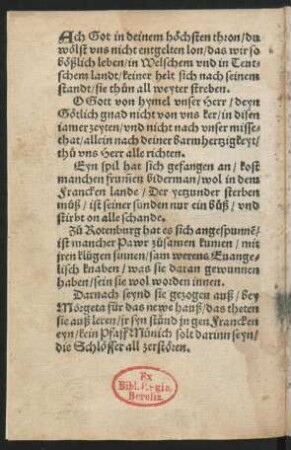 Ach Got in deinem höchsten thron/du
wölst vns nicht entgelten lon/das wir so
bößlich leben/in Welschem vnd in Teut-
schem landt/keiner helt sich nach seinem
standt/sie thün all weyter streben.
O Gott von hymel vnser Herr/deyn
Götlich gnad nicht von vns ker/in disen
iamer zeyten/vnd nicht nach vnser misse-
that/allein nach deiner barmhertzigkeyt/
thü vns Herr alle richten.
Eyn spil hat sich gefangen an/kost
manchen frumen biderman/wol in dem
Francken lande/Der yetzunder sterben
müß/ist seiner sunden nur ein büß/vnd
stirbt on alle schande.
Zü Rotenburg hat es sich angespunnē/
ist mancher Pawr züsamen kumen/mit
jren klügen sinnen/sam werens Euange-
lisch knaben/was sie daran gewunnen
haben/sein sie wol worden innen.
Darnach seynd sie gezogen auß/bey
Mörgeta für das newe hauß/das theten
sie auß leren/jr syn stünd jn gen Francken
eyn/kein Pfaff Münich solt darinn seyn/
die Schlösser all zerstören.
Ex
Bibl. Regia
Berolin.